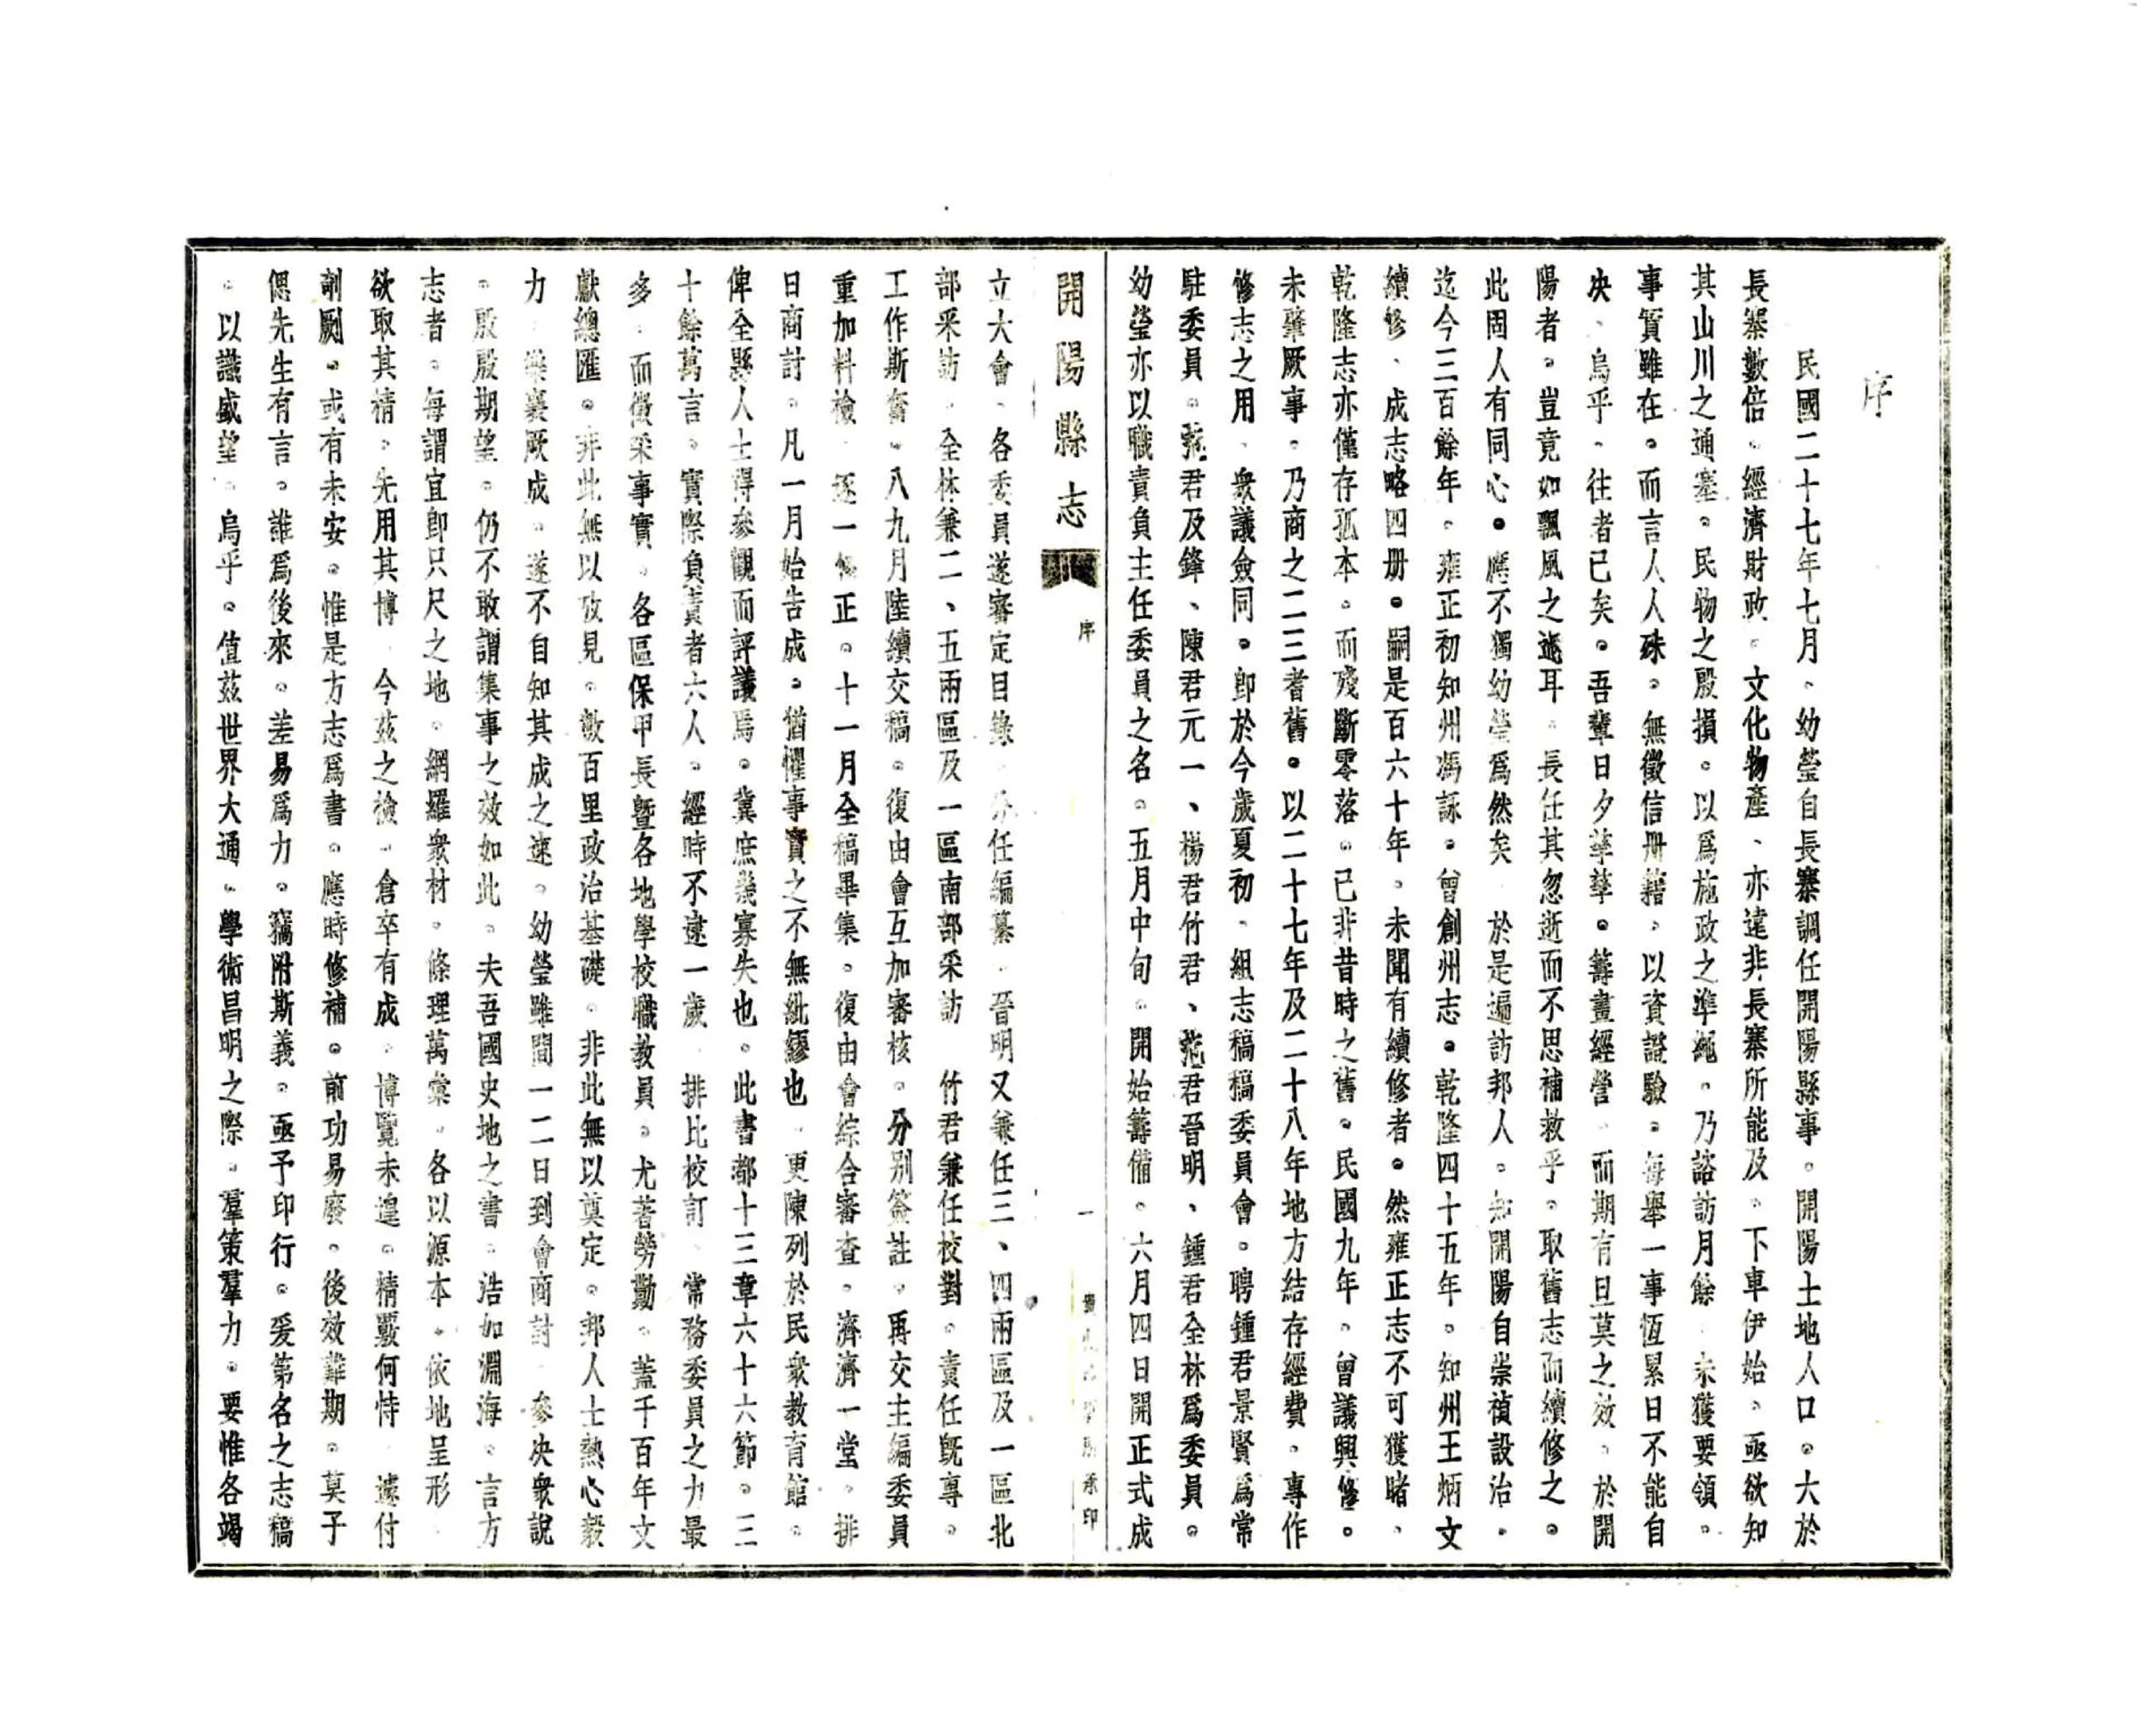 序
民國二十七年七月。幼瑩自長寨調任開陽縣事。開陽土地人口。大於
長寨數倍。經濟財政。文化物產、亦遠非長寨所能及。下車伊始。亟欲知
其山川之通塞。民物之殷損。以爲施政之準繩。乃諮訪月餘。未獲要領。
事質雖在。而言人人殊。無徵信册籍、以資證驗。每舉一事恆累日不能自
决、烏乎、往者已矣。吾輩日夕孳孳。籌畫經營、而期有旦莫之效。於開
陽者。豈竟如飄風之過耳。長任其忽逝而不思補救乎。取舊志而續修之。
此固人有同心。應不獨幼瑩爲然矣。於是遍訪邦人。知開陽自崇禎設治。
迄今三百餘年。雍正初知州馮詠。曾創州志。乾隆四十五年。知州王炳文
續修、成志略四册。嗣是百六十年。未聞有續修者。然雍正志不可獲睹、
乾隆志亦僅存孤本。而殘斷零落。已非昔時之舊。民國九年。曾議興修。
未肇厥事。乃商之二三耆舊。以二十七年及二十八年地方結存經費。專作
修志之用、衆議僉同。卽於今歲夏初、組志稿稿委員會。聘鍾君景賢爲常
駐委員。君及鋒、陳君元一、楊君竹君、君晉明、鍾君全林爲委員。
幼瑩亦以職責負主任委員之名。五月中旬。開始籌備。六月四日開正式成
開陽縣志
序
一
承印
立大會、各委員遂審定目錄。分任編纂。晉明又兼任三、四兩區及一區北
部采訪。全林兼二、五兩區及一區南部采訪。竹君兼任校對。責任既專。
工作斯奮。八九月陸續交稿。復由會互加審核。分別簽註。再交主編委員
重加料檢。逐一修正。十一月全稿畢集。復由會綜合審查。濟濟一堂。排
日商討。凡一月始告成。猶懼事實之不無紕繆也。更陳列於民衆教育館。
俾全縣人士得參觀而評議焉。冀庶幾寡失也。此書都十三章六十六節。三
十餘萬言。實際負責者六人。經時不逮一歲、排比校訂、常務委員之力最
多、而徵采事實。各區保甲長曁各地學校職教員。尤著勞勩。蓋千百年文
獻總匯。非此無以攷見。數百里政治基礎。非此無以奠定。邦人士熱心毅
力、樂襄厥成。遂不自知其成之速。幼瑩雖間一二日到會商討、參决衆說
。殷殷期望。仍不敢謂集事之效如此。夫吾國史地之書。浩如淵海。言方
志者。每謂宜卽只尺之地。網羅衆材。條理萬彙。各以源本。依地呈形
欲取其精。先用其博、今茲之檢、倉卒有成。博覽未遑。精覈何恃、遽付
剞劂。或有未安。惟是方志爲書。應時修補。前功易廢。後效難期。莫子
偲先生有言。誰爲後來。差易爲力。竊附斯義。亟予印行。爰第名之志稿
。以識盛望。烏乎。值茲世界大通。學術昌明之際。羣策羣力。要惟各竭